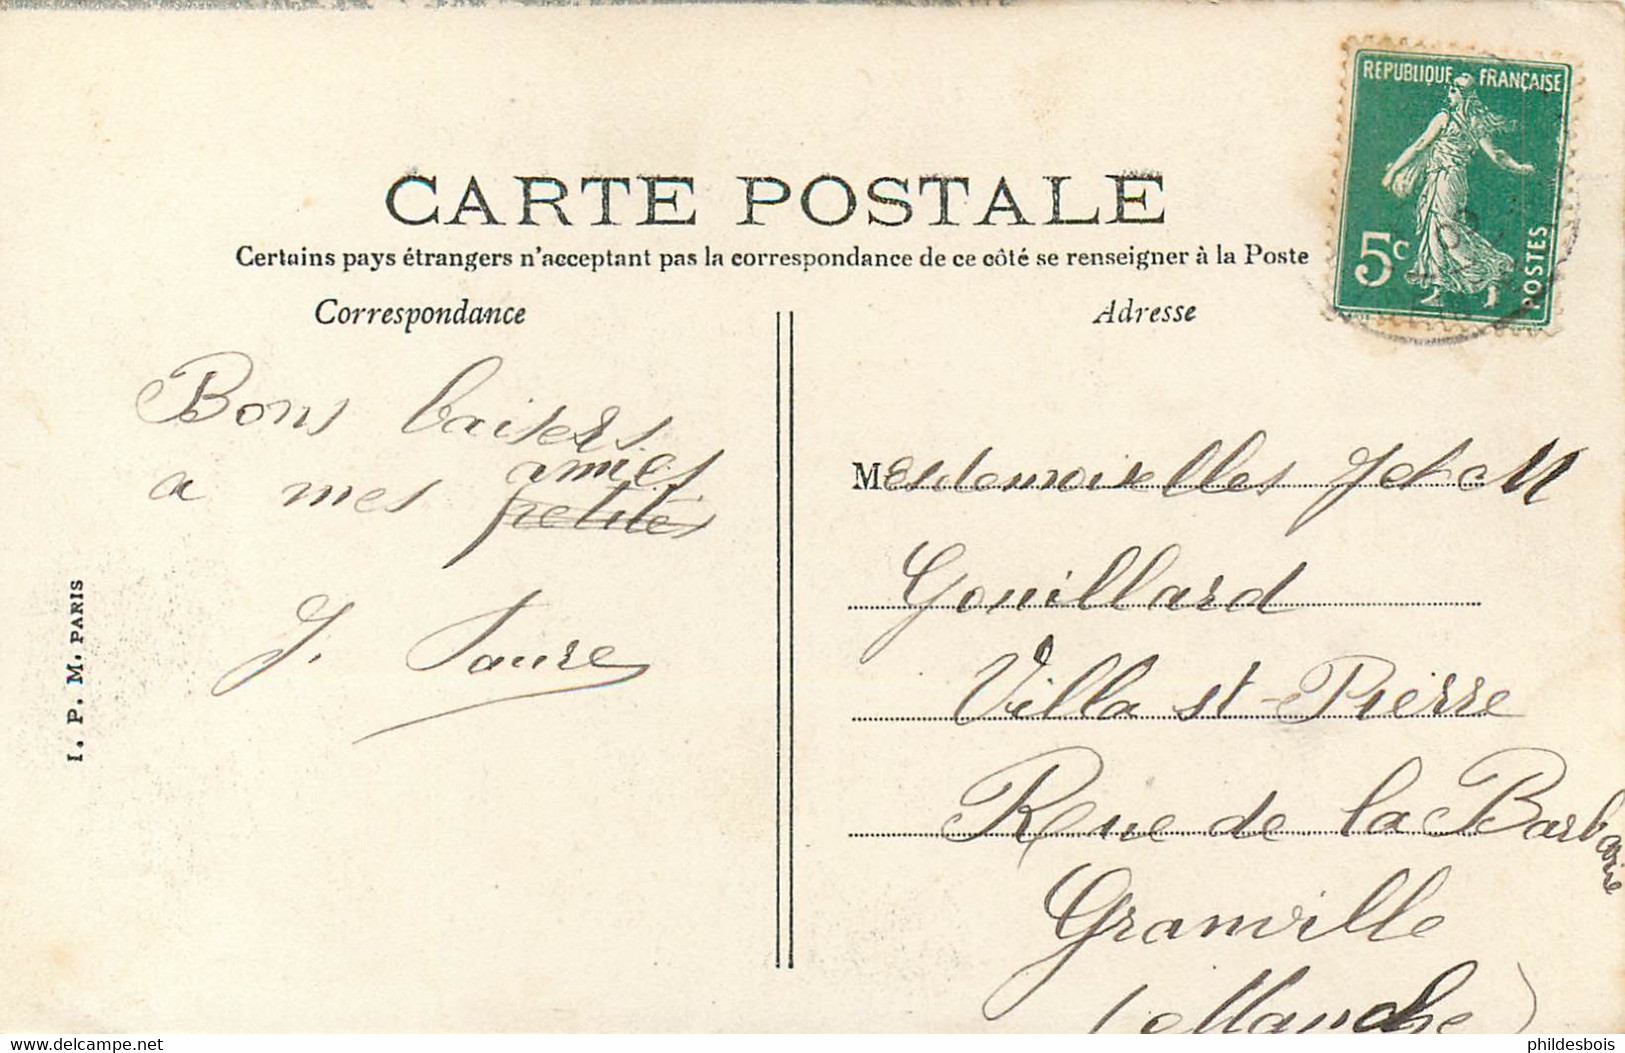 REPUBLIQUE FRANÇAISE
5c
POSTES
CARTE POSTALE
Certains pays étrangers n'acceptant pas la correspondance de ce côté se renseigner à la Poste
Correspondance
Bons baisers
a mes amies
petites
J. Faure
I. P. M. PARIS
Adresse
Mesdemoiselles J et M
Gouillard
Villa St-Pierre
Rue de la Barbarie
Granville
(Manche)
delcampe.net
phildesbois